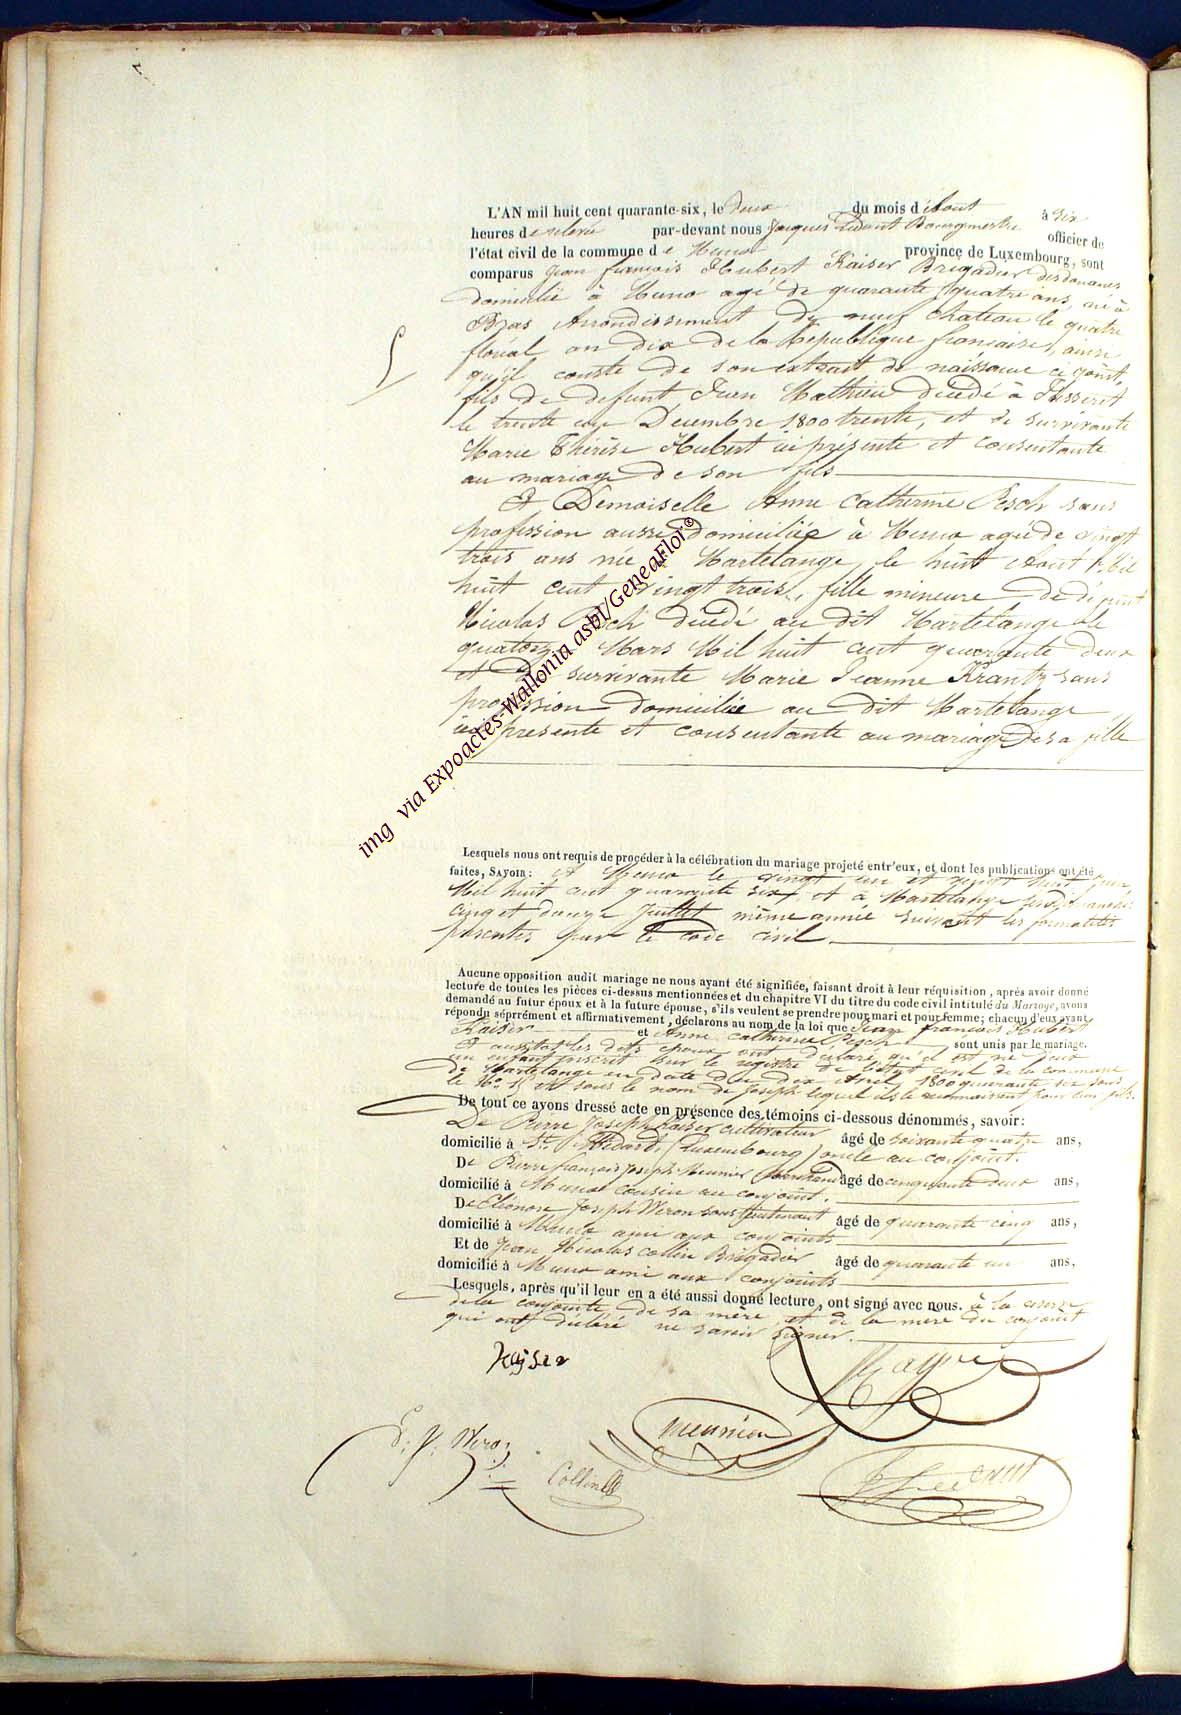 L'AN mil huit cent quarante-six, le deux du mois d'Aout à six
heures de relevée par-devant nous Jacques Bourgmestre officier de
l'état civil de la commune de Muno province de Luxembourg, sont
comparus Jean françois Hubert Kaiser Brigadier des douanes
domicilié à Muno agé de quarante quatre ans, né à
Bras Arrondissement de neuf chateau le quatre
floréal an dix de la République francaise, ainsi
qu'il conste de son extrait de naissance ci joint,
fils de defunt Jean Mathieu décédé à
le trente Decembre 1800 trente, et de survivante
Marie Thérèse Hubert ici présente et consentante
au mariage de son fils
Et Demoiselle Anne Catherine Pesch sans
profession aussi domiciliée à Muno agée de vingt
trois ans née à Martelange, le huit Aout Mil
huit cent vingt trois, fille mineure de défunt
Nicolas Pesch décédé au dit Martelange le
quatorze Mars Mil huit cent quarante deux
et de survivante Marie Jeanne Krantz sans
profession domiciliée au dit Martelange
ici presente et consentante au mariage de sa fille
Lesquels nous ont requis de procéder à la célébration du mariage projeté entr'eux, et dont les publications ont été
faites, SAVOIR: à Muno le vingt un et vingt huit Juin
Mil huit cent quarante six, et à Martelange les dimanches
cinq et douze Juillet même année suivant les formalités
par le code civil.
Aucune opposition audit mariage ne nous ayant été signifiée, faisant droit à leur réquisition, après avoir donné
lecture de toutes les pièces ci-dessus mentionnées et du chapitre VI du titre du code civil intitulé du Mariage, avons
demandé au futur époux et à la future épouse, s'ils veulent se prendre pour mari et pour femme; chacun d'eux ayant
répondu séprrément et affirmativement, déclarons au nom de la loi que Jean françois Hubert
Kaiser et Anne catherine Pesch sont unis par le mariage.
Et aussitot les dits epoux ont declaré qu'il est né d'eux
un enfant inscrit sur le registre de l'état civil de la commune
de Martelange en date du dix Avril 1800 quarante six sous
le No. sous le nom de Joseph lequel ils le reconnaissent pour leur fils.
De tout ce avons dressé acte en présence des témoins ci-dessous dénommés, savoir:
De Pierre Joseph Kaiser cultivateur âgé de soixante quatre ans,
domicilié à St. (Luxembourg) oncle au conjoint.
De Pierre françois Joseph Meunier âgé de cinquante deux ans,
domicilié à Muno cousin au conjoint.
De Eléonore Joseph Weron sous Lieutenant âgé de quarante cinq ans,
domicilié à Muno ami aux conjoints
Et de Jean Nicolas Collin Brigadier âgé de quarante un ans,
domicilié à Muno ami aux conjoints
Lesquels, après qu'il leur en a été aussi donné lecture, ont signé avec nous. à la
de la conjointe, de sa mère, et de la mère du conjoint
qui ont déclaré ne savoir signer.
Kayser
meunier
Collin
img via Expoactes-Wallonia asbl/GeneaFlor©